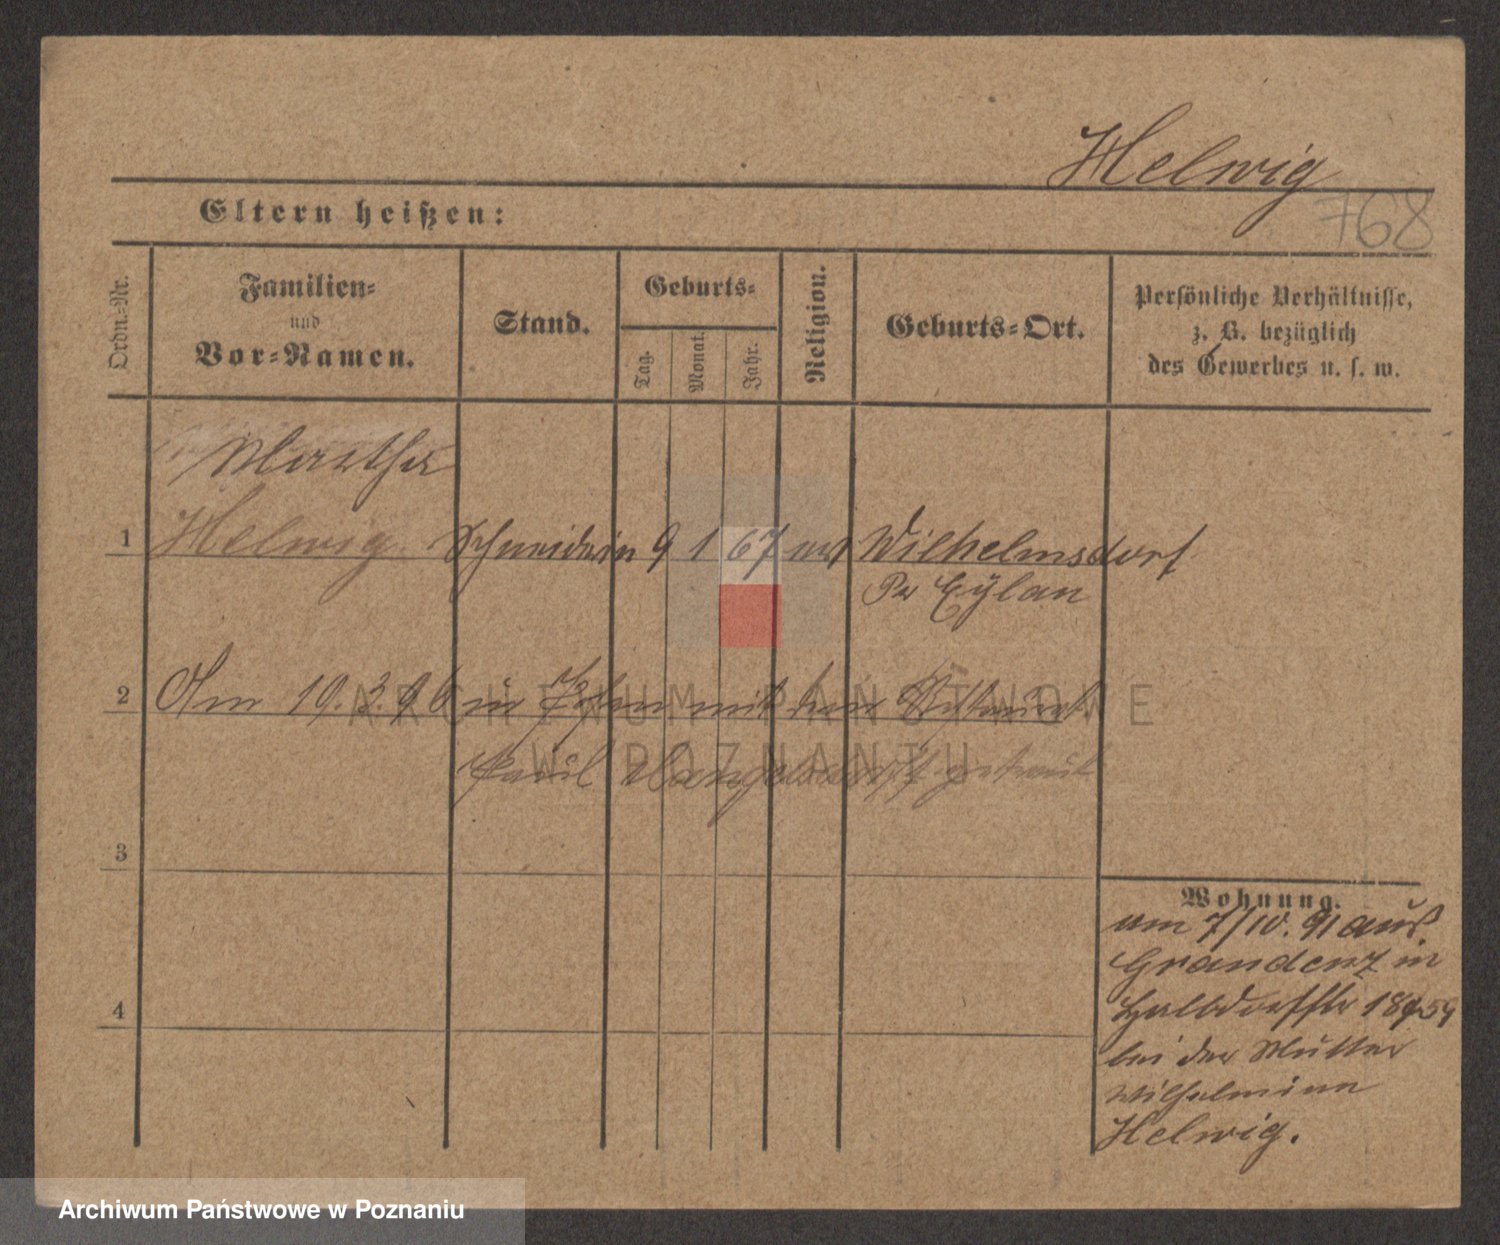 Helwig
768
Eltern heißen:
Ordn.-Nr.
Familien-
und
Vor-Namen.
Stand.
Geburts-
Tag.
Monat.
Jahr.
Religion.
Geburts-Ort.
Persönliche Verhältnisse,
z. B. bezüglich
des Gewerbes u. s. w.
Martha
1 Helwig Schneiderin 9 1 67 ev Wilhelmsdorf
Pr Eylau
2 Am 19.3.96 in Posen mit dem
Paul getraut
3
Wohnung.
am 7/10. 91 aus
Graudenz in
Halbdorfstr
4
bei der Mutter
Wilhelmine
Helwig.
ARCHIWUM PAŃSTWOWE
W POZNANIU
Archiwum Państwowe w Poznaniu